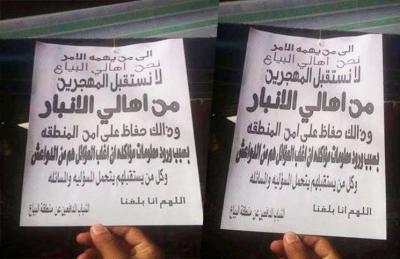 الى من يهمه الامر
نحن اهالي البياع
لا نستقبل المهجرين
من اهالي الأنبار
وذالك حفاظ على امن المنطقه
بسبب ورود معلومات مؤكده ان اغلب العوائل هم من الدواعش
وكل من يستقبلهم يتحمل المسؤليه والمسائله
اللهم انا بلغنا
الشباب المدافعين عن منطقة البياع
الى من يهمه الامر
نحن اهالي البياع
لا نستقبل المهجرين
من اهالي الأنبار
وذالك حفاظ على امن المنطقه
بسبب ورود معلومات مؤكده ان اغلب العوائل هم من الدواعش
وكل من يستقبلهم يتحمل المسؤليه والمسائله
اللهم انا بلغنا
الشباب المدافعين عن منطقة البياع